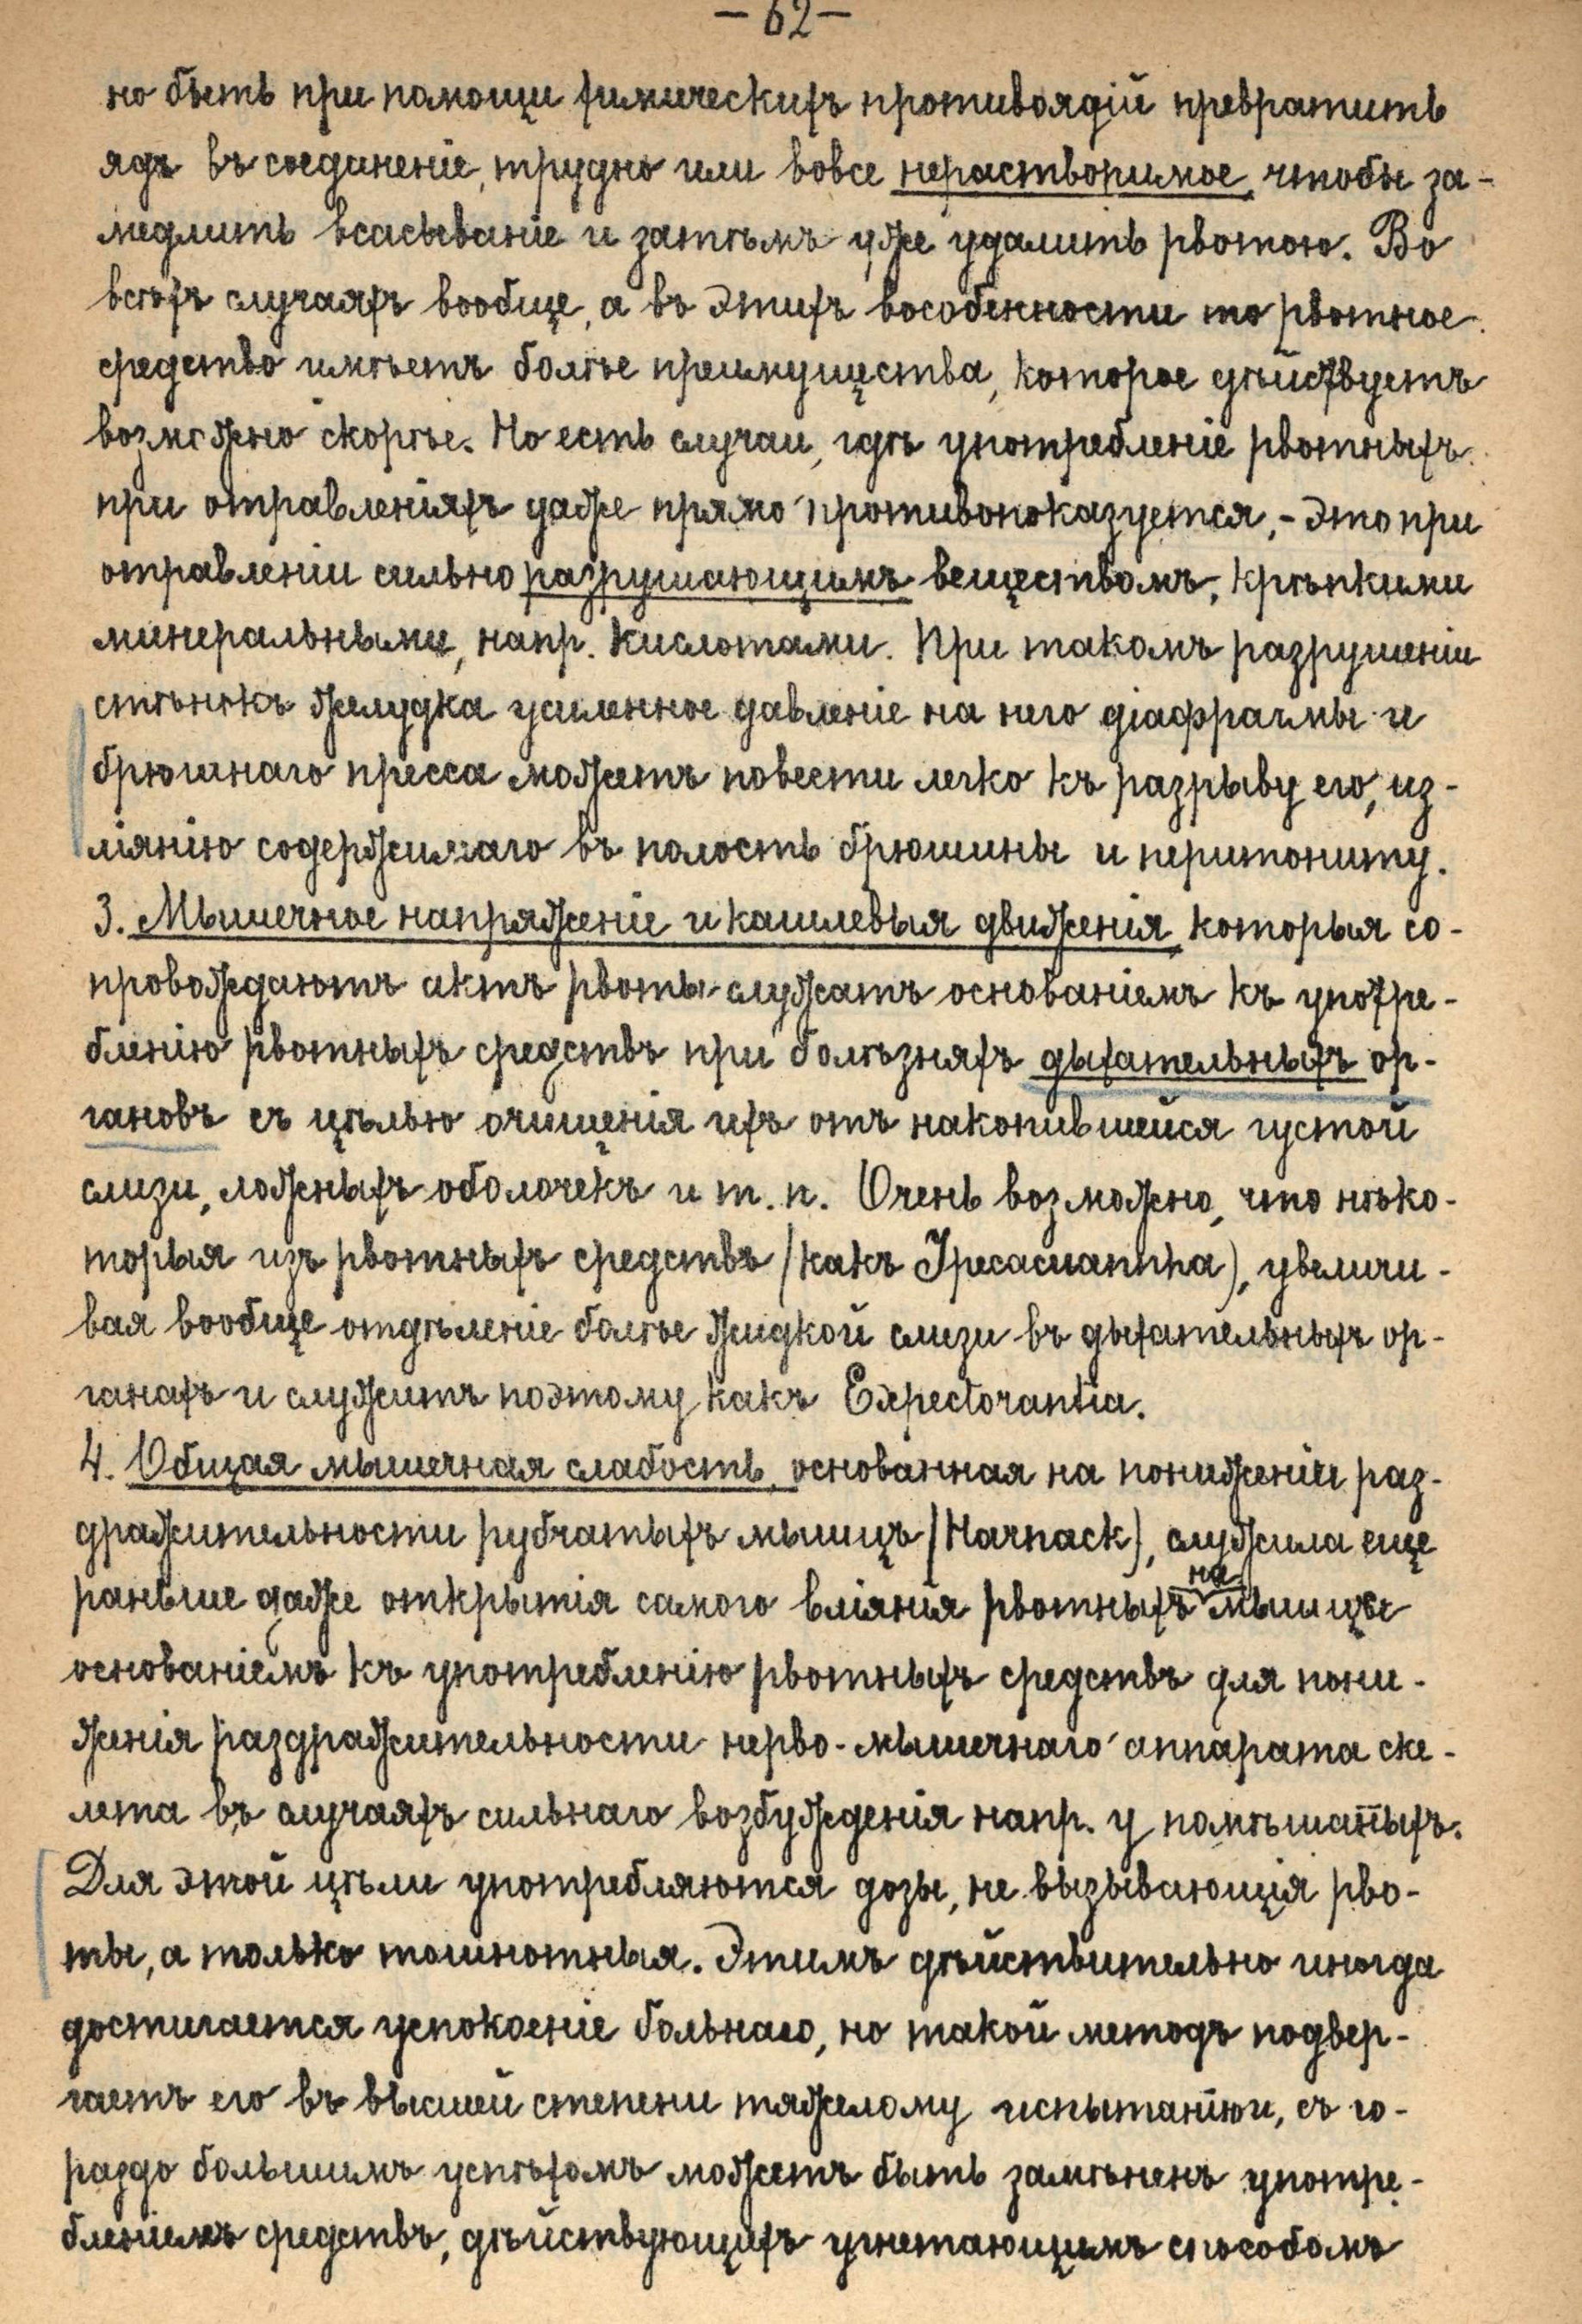 — 62 —
но быть при помощи химическихъ противоядій превратить
ядъ въ соединеніе, трудно или вовсе нерастворимое, чтобы за-
медлить всасываніе и затѣмъ уже удалить рвотою. Во
всѣхъ случаяхъ вообще, а въ этихъ вособенности то рвотное
средство имѣетъ болѣе преимущества, которое дѣйствуетъ
возможно скорѣе. Но есть случаи, гдѣ употребленіе рвотныхъ
при отравленіяхъ даже прямо противопоказуется, - это при
отравленіи сильно разрушающимъ веществомъ, крѣпкими
минеральными, напр. кислотами. При такомъ разрушеніи
стѣнокъ желудка усиленное давленіе на него діафрагмы и
брюшнаго пресса можетъ повести легко къ разрыву его, из-
ліянію содержимаго въ полость брюшины и перитониту.
3. Мышечное напряженіе и кашлевыя движенія, которыя со-
провождаютъ актъ рвоты служатъ основаніемъ къ употре-
бленію рвотныхъ средствъ при болѣзняхъ дыхательныхъ ор-
гановъ съ цѣлью очищенія ихъ отъ накопившейся густой
слизи, ложныхъ оболочекъ и т. п. Очень возможно, что нѣко-
торыя изъ рвотныхъ средствъ (какъ Ipecacuanha), увеличи-
вая вообще отдѣленіе болѣе жидкой слизи въ дыхательныхъ ор-
ганахъ и служитъ поэтому какъ Expectorantia.
4. Общая мышечная слабость, основанная на пониженіи раз-
дражительности рубчатыхъ мышцъ (Harnack), служила еще
раньше даже открытія самого вліянія рвотныхъ на мышцы
основаніемъ къ употребленію рвотныхъ средствъ для пони-
женія раздражительности нерво-мышечнаго аппарата ске-
лета въ случаяхъ сильнаго возбужденія напр. у помѣшан̅ыхъ.
Для этой цѣли употребляются дозы, не вызывающія рво-
ты, а только тошнотныя. Этимъ дѣйствительно иногда
достигается успокоеніе больнаго, но такой методъ подвер-
гаетъ его въ высшей степени тяжелому испытанію и, съ го-
раздо большимъ успѣхомъ можетъ быть замѣненъ употре-
бленіемъ средствъ, дѣйствующихъ угнетающимъ способомъ